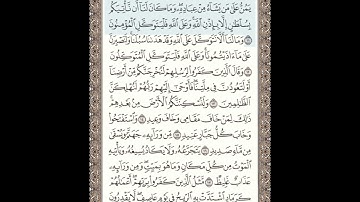 يَمُنُّ عَلَىٰ مَن يَشَآءُ مِنْ عِبَادِهِۦ ۖ وَمَا كَانَ لَنَآ أَن نَّأْتِيَكُم
بِسُلْطَٰنٍ إِلَّا بِإِذْنِ ٱللَّهِ ۚ وَعَلَى ٱللَّهِ فَلْيَتَوَكَّلِ ٱلْمُؤْمِنُونَ
۝١١ وَمَا لَنَآ أَلَّا نَتَوَكَّلَ عَلَى ٱللَّهِ وَقَدْ هَدَىٰنَا سُبُلَنَا ۚ وَلَنَصْبِرَنَّ
عَلَىٰ مَآ ءَاذَيْتُمُونَا ۚ وَعَلَى ٱللَّهِ فَلْيَتَوَكَّلِ ٱلْمُتَوَكِّلُونَ
۝١٢ وَقَالَ ٱلَّذِينَ كَفَرُوا۟ لِرُسُلِهِمْ لَنُخْرِجَنَّكُم مِّنْ أَرْضِنَآ
أَوْ لَتَعُودُنَّ فِى مِلَّتِنَا ۖ فَأَوْحَىٰٓ إِلَيْهِمْ رَبُّهُمْ لَنُهْلِكَنَّ
ٱلظَّٰلِمِينَ ۝١٣ وَلَنُسْكِنَنَّكُمُ ٱلْأَرْضَ مِنۢ بَعْدِهِمْ ۚ
ذَٰلِكَ لِمَنْ خَافَ مَقَامِى وَخَافَ وَعِيدِ ۝١٤ وَٱسْتَفْتَحُوا۟
وَخَابَ كُلُّ جَبَّارٍ عَنِيدٍ ۝١٥ مِّن وَرَآئِهِۦ جَهَنَّمُ وَيُسْقَىٰ
مِن مَّآءٍ صَدِيدٍ ۝١٦ يَتَجَرَّعُهُۥ وَلَا يَكَادُ يُسِيغُهُۥ وَيَأْتِيهِ
ٱلْمَوْتُ مِن كُلِّ مَكَانٍ وَمَا هُوَ بِمَيِّتٍ ۖ وَمِن وَرَآئِهِۦ
عَذَابٌ غَلِيظٌ ۝١٧ مَّثَلُ ٱلَّذِينَ كَفَرُوا۟ بِرَبِّهِمْ ۖ أَعْمَٰلُهُمْ
كَرَمَادٍ ٱشْتَدَّتْ بِهِ ٱلرِّيحُ فِى يَوْمٍ عَاصِفٍ ۖ لَّا يَقْدِرُونَ